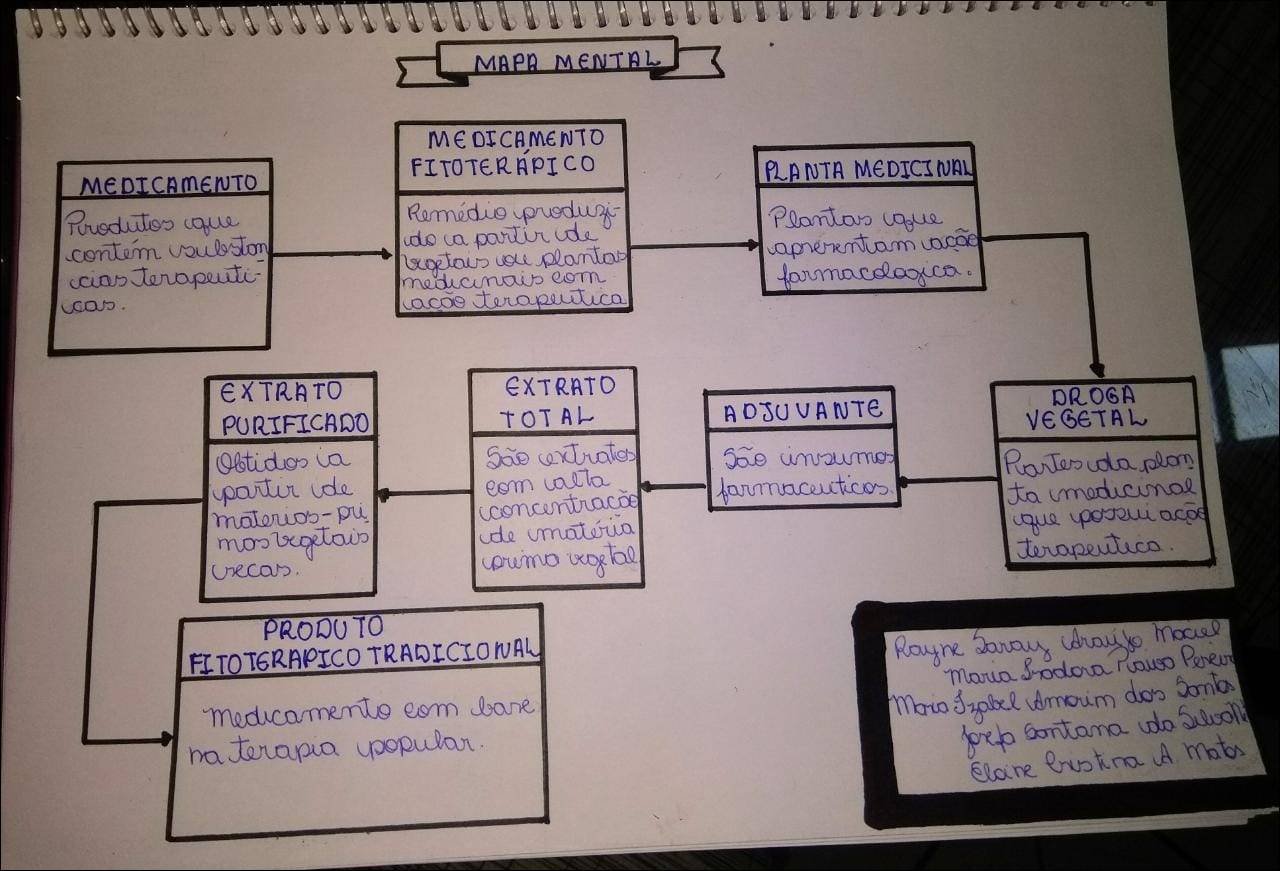 MAPA MENTAL
MEDICAMENTO
Produtos que
contém substân
cias terapeuti-
cas.
MEDICAMENTO
FITOTERÁPICO
Remédio produzi-
do a partir de
vegetais ou plantas
medicinais com
ação terapeutica
PLANTA MEDICINAL
Plantas que
apresentam ação
farmacologica.
DROGA
VEGETAL
Partes da plan
ta medicinal
que possui ação
terapeutica.
ADJUVANTE
São insumos
farmaceuticos.
EXTRATO
TOTAL
São extratos
com alta
concentração
de matéria
prima vegetal
EXTRATO
PURIFICADO
Obtidos a
partir de
materias-pri
mas vegetais
secas.
PRODUTO
FITOTERAPICO TRADICIONAL
Medicamento com base
na terapia popular.
Rayne Saray Araújo Maciel
Maria Isadora Pereira
Maria Izabel Amorim dos Santos
Josefa Santana da Silva
Elaine Cristina A. Matos